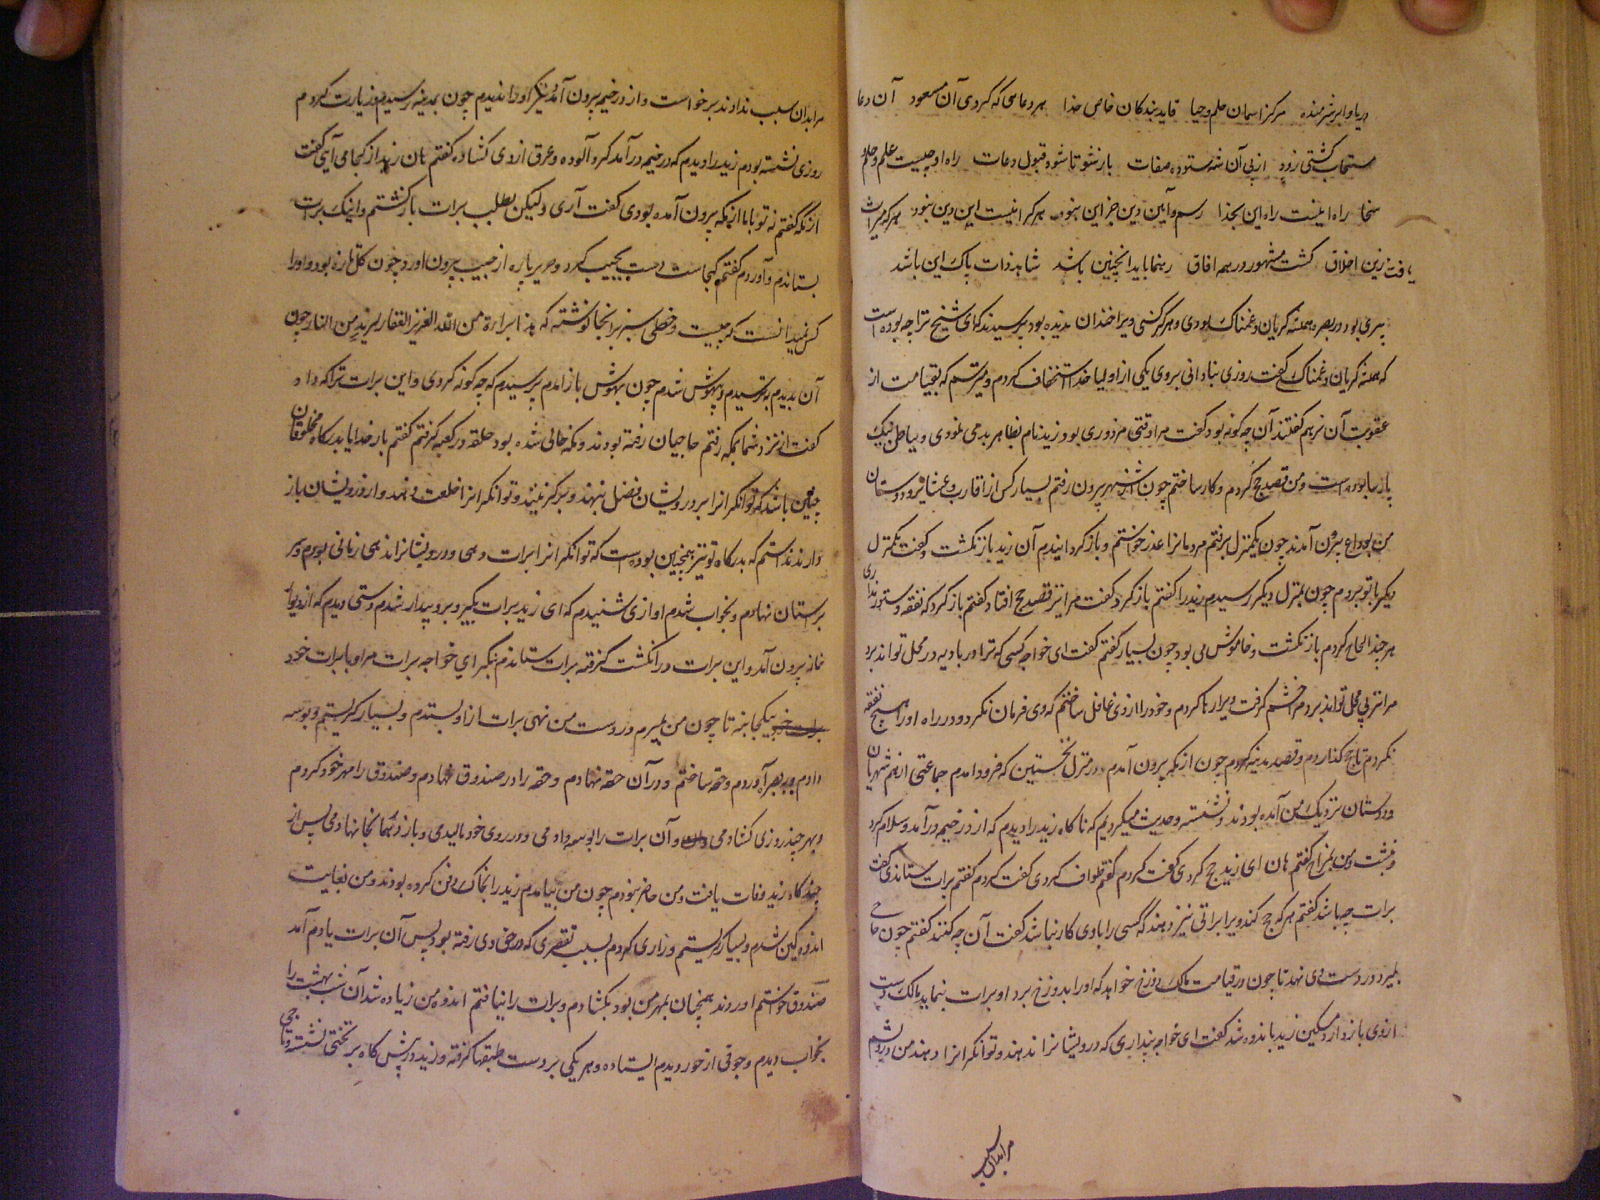 دریا و ابر شرمنده مرکز اسمان حلم و حیا قاید بندکان خاص خدا هر دعای که کردی آن مسعود آن دعا
مستجاب کشتی زود از پی آن شه ستوده صفات باز نشو تا شود قبول دعات راه او چیست علم و حلم و
سخا راه اینست راه این بخدا رسم و آیین دین جز این نبود هر کرا نیست این دین نبود هر که میراث
یافت زین اخلاق کشت مشهور در همه افاق رهنما باید انچنین باشد شاهد ذات پاک این باشد
پیری بود در بصره همیشه کریان و غمناک بودی و هرکز کسی ویرا خندان ندیده بود پرسیدند که ای شیخ ترا چه بوده است
که همیشه کریان و غمناکی گفت روزی بنادانی بروی یکی از اولیا خدا استخفاف کردم و میترسم که بقیامت از
عقوبت آن نرهم گفتند آن چه کونه بود گفت مرا وقتی مزدوری بود زید نام بظاهر بد می نمودی و بباطن نیک
پارسا بوده است و من قصد حج کردم و کار ساختم چون از شهر بیرون رفتم بسیار کس از اقارب و عشایر و دوستان
من بوداع بیرون آمدند چون یکمنزل برفتم مردمانرا عذر خواستم و باز کردانیدم آن زید باز نکشت و گفت یکمنزل
دیگر با تو بروم چون بمنزل دیگر رسیدم زید را گفتم باز گرد گفت مرا نیز قصد حج افتاد گفتم باز گرد که نفقه و ستور نداری
هر چند الحاح کردم باز نکشت و خاموش می بود چون بسیار گفتم گفت ای خواجه کسی که ترا در بادیه در محمل تواند برد
مرا نیز بی محمل تواند برد مرا خشم گرفت ویرا رها کردم و خود را از وی غافل ساختم که وی فرمان نکرد و در راه او را هیچ نفقه
نکردم تا حج گذاردم و قصد مدینه کردم چون از مکه بیرون آمدم در منزل نخستین که فرود امدم جماعتی از همشهریان
و دوستان نزدیک من آمده بودند و نشسته و حدیث میکردیم که ناکاه زید را دیدم که از در خیمه در آمد و سلام کرد
و بنشست و من بمزاح گفتم هان ای زید حج کردی گفت کردم گفتم طواف کردی گفت کردم گفتم برات ستاندی گفت
برات چه باشد گفتم هر که حج کند ویرا براتی نیز دهند که کسی را با وی کار نباشد گفت آن چه کنند گفتم چون حاجی
بمیرد در دست وی نهد تا چون در قیامت مالک دوزخ خواهد که او را بدوزخ برد او برات بنماید مالک دست
از وی باز دارد مسکین زید باندوه شد گفت ای خواجه پنداری که درویشانرا ندهند و توانکرانرا دهند من درویشم
مرا بدان سبب
مرا بدان سبب ندادند برخواست و از در خیمه بیرون آمد دیگر او را ندیدم چون بمدینه رسیدم و زیارت کردم
روزی نشسته بودم زید را دیدم که در خیمه در آمد کرد آلوده و عرق از وی کشاده گفتم هان زید از کجا می آیی گفت
از مکه گفتم نه تو با ما از مکه بیرون آمده بودی گفت آری ولیکن بطلب برات باز کشتم و اینک برات
بستاندم و آوردم گفتم کجاست دست بجیب کرد و حریر پاره از جیب بیرون اورد چون کل تازه بود و او را
کس نمیدانست که چیست و خطی سبز بر انجا نوشته که هذا براءة من الله العزیز الغفار لزید من النار چون
آن بدیدم بترسیدم و بیهوش شدم چون بهوش باز امدم پرسیدم که چه کونه کردی و این برات ترا که داد
گفت از نزد شما بمکه رفتم حاجیان رفته بودند و مکه خالی شده بود حلقه در کعبه گرفتم گفتم بار خدایا بدرکاه مخلوقان
چنین باشد که توانکرانرا بر درویشان فضل نهند و بر گزینند و توانکرانرا خلعت دهند و از درویشان باز
دارند ندانستم که بدرکاه تو نیز همچنین بوده است که توانکرانرا برات دهی و درویشانرا ندهی زمانی بودم و سر
بر استان نهادم و بخواب شدم اوازی شنیدم که ای زید برات بگیر و برو بیدار شدم دستی دیدم که از دیوار
خانه بیرون آمد و این برات در انکشت گرفته برات ستاندم بگیر ای خواجه برات مرا و با برات خود
بیکجا بنه تا چون من بمیرم در دست من نهی برات از او بستدم و بسیار کریستم و بوسه
دادم و ببصره آوردم و حقه ساختم و در آن حقه نهادم و حقه را در صندوق نهادم و صندوق را مهر خود کردم
و بهر چند روزی کشادمی و آن برات را بوسه دادمی و در روی خود مالیدی و باز در همانجا نهادمی پس از
چند کاه زید وفات یافت و من حاضر نبودم چون من بیامدم زید را بخاک دفن کرده بودند و من بغایت
اندوهکین شدم و بسیار کریستم و زاری کردم بسبب تقصیری که در حق وی رفته بود پس آن برات یادم آمد
صندوق خواستم اوردند همچنان بمهر من بود بکشادم و برات را نیافتم اندوه من زیاده شد آن شب بهشت را
بخواب دیدم و جوقی از حور دیدم ایستاده و هر یکی بر دست طبقها گرفته و زید در پیش کاه بر تختی نشسته و تاجی